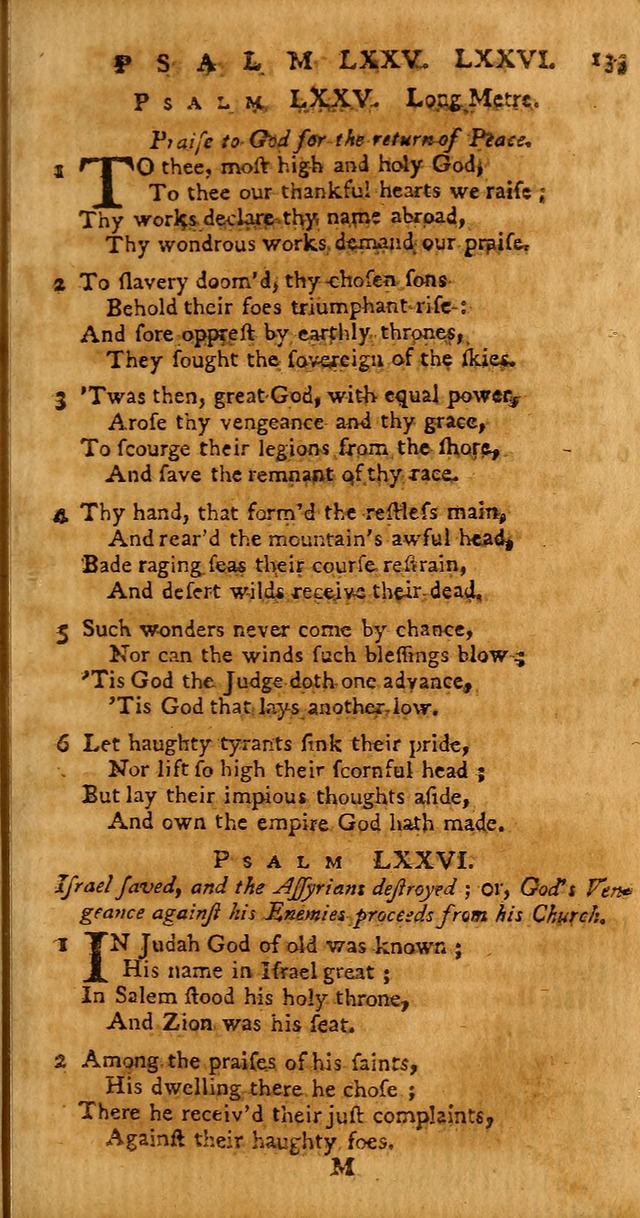 PSALM LXXV. LXXVI. 133
PSALM LXXV. Long Metre.
Praiſe to God for the return of Peace.
1 TO thee, moſt high and holy God,
To thee our thankful hearts we raiſe ;
Thy works declare thy name abroad,
Thy wondrous works demand our praiſe.
2 To ſlavery doom'd, thy choſen ſons
Behold their foes triumphant riſe :
And ſore oppreſt by earthly thrones,
They ſought the ſovereign of the ſkies.
3 'Twas then, great God, with equal power,
Aroſe thy vengeance and thy grace,
To ſcourge their legions from the ſhore,
And ſave the remnant of thy race.
4 Thy hand, that form'd the reſtleſs main,
And rear'd the mountain's awful head,
Bade raging ſeas their courſe reſtrain,
And deſert wilds receive their dead.
5 Such wonders never come by chance,
Nor can the winds ſuch bleſſings blow ;
'Tis God the Judge doth one advance,
'Tis God that lays another low.
6 Let haughty tyrants ſink their pride,
Nor lift ſo high their ſcornful head ;
But lay their impious thoughts aſide,
And own the empire God hath made.
PSALM LXXVI.
Iſrael ſaved, and the Aſſyrians deſtroyed ; or, God's Ven-
geance againſt his Enemies proceeds from his Church.
1 IN Judah God of old was known ;
His name in Iſrael great ;
In Salem ſtood his holy throne,
And Zion was his ſeat.
2 Among the praiſes of his ſaints,
His dwelling there he choſe ;
There he receiv'd their juſt complaints,
Againſt their haughty foes.
M